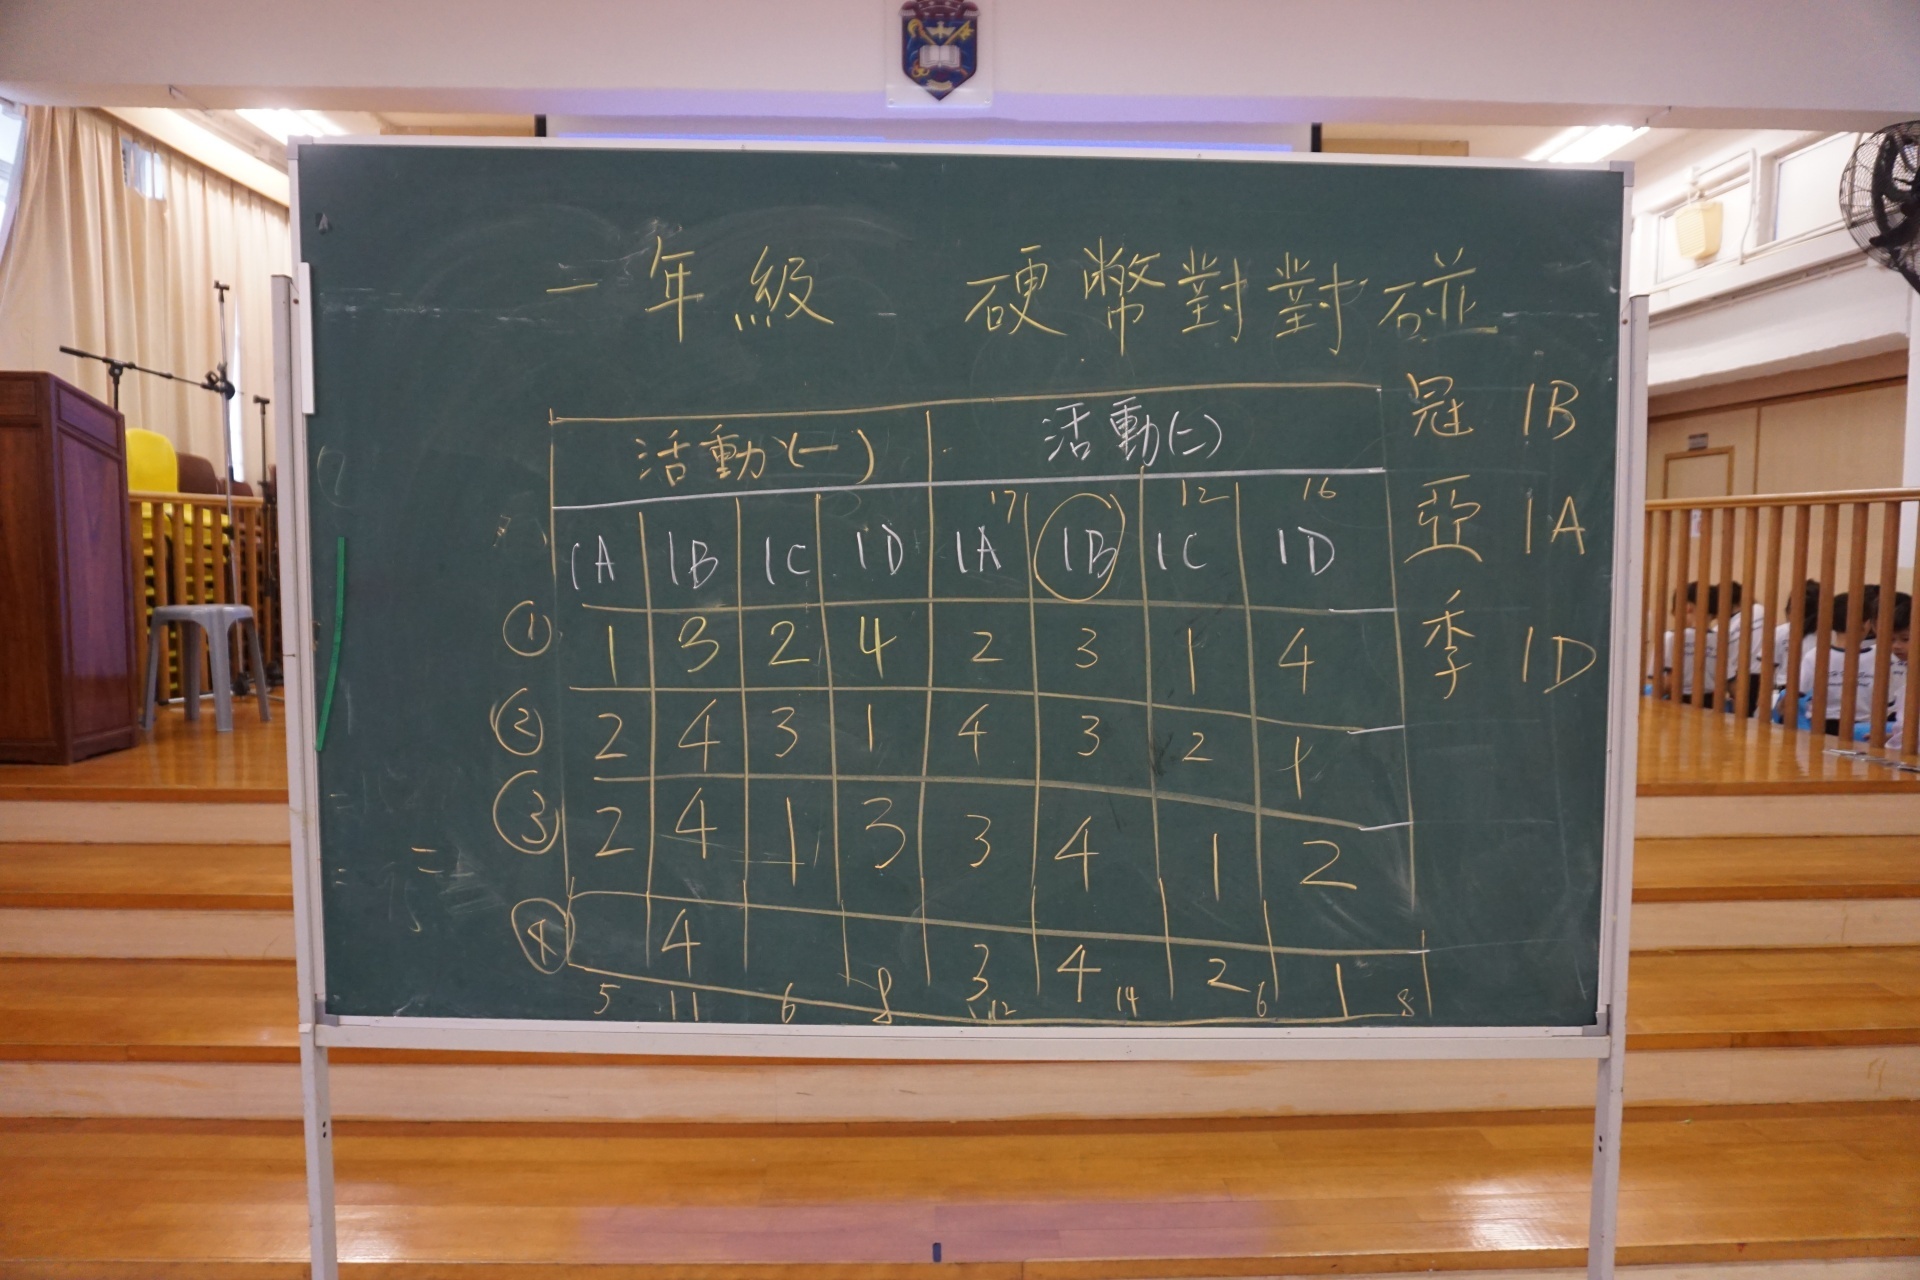 一年級 硬幣對對碰
活動(一) 活動(二)
17 12 16
1A 1B 1C 1D 1A 1B 1C 1D
① 1 3 2 4 2 3 1 4
② 2 4 3 1 4 3 2 1
③ 2 4 1 3 3 4 1 2
④ 4 3 4 2 1
5 11 6 8 12 14 6 8
冠 1B
亞 1A
季 1D